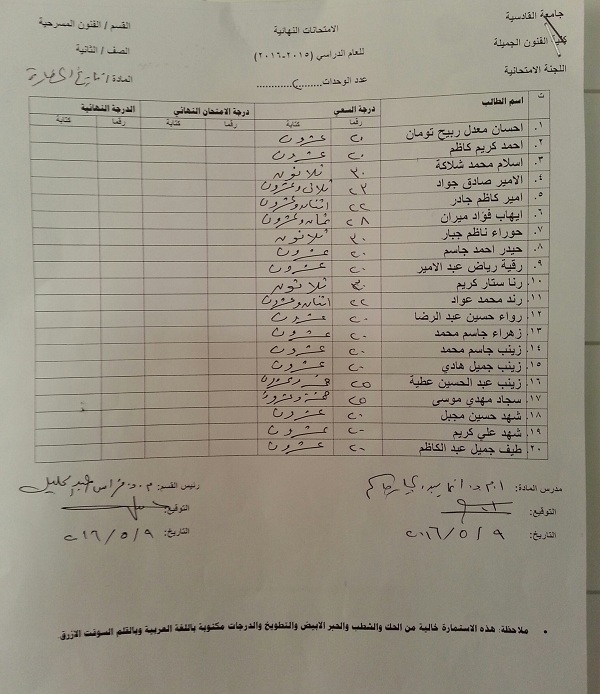 جامعة القادسية
كلية الفنون الجميلة
اللجنة الامتحانية
الامتحانات النهائية
للعام الدراسي (٢٠١٥-٢٠١٦)
عدد الوحدات
القسم / الفنون المسرحية
الصف / الثانية
المادة / تاريخ الحضارة
ت اسم الطالب درجة السعي درجة الامتحان النهائي الدرجة النهائية
رقما كتابة رقما كتابة رقما كتابة
١. احسان معدل ربيح تومان ٢٠ عشرون
٢. احمد كريم كاظم ٢٠ عشرون
٣. اسلام محمد شلاكة ٣٠ ثلاثون
٤. الامير صادق جواد ٢٣ ثلاث وعشرون
٥. امير كاظم جادر ٢٢ اثنان وعشرون
٦. ايهاب فؤاد ميران ٢٨ ثمان وعشرون
٧. حوراء ناظم جبار ٣٠ ثلاثون
٨. حيدر احمد جاسم ٢٠ عشرون
٩. رقية رياض عبد الامير ٢٠ عشرون
١٠. رنا ستار كريم ٣٠ ثلاثون
١١. رند محمد عواد ٢٢ اثنان وعشرون
١٢. رواء حسين عبد الرضا ٢٠ عشرون
١٣. زهراء جاسم محمد ٢٠ عشرون
١٤. زينب جاسم محمد ٢٠ عشرون
١٥. زينب جميل هادي ٢٠ عشرون
١٦. زينب عبد الحسين عطية ٢٥ خمسة وعشرون
١٧. سجاد مهدي موسى ٢٥ خمسة وعشرون
١٨. شهد حسين مجبل ٢٠ عشرون
١٩. شهد علي كريم ٢٠ عشرون
٢٠. طيف جميل عبد الكاظم ٢٠ عشرون
مدرس المادة: ا.م.د.
التوقيع:
التاريخ: ٢٠١٦/٥/٩
رئيس القسم: م.د. فراس
التوقيع:
التاريخ: ٢٠١٦/٥/٩
• ملاحظة: هذه الاستمارة خالية من الحك والشطب والحبر الابيض والتطويخ والدرجات مكتوبة باللغة العربية وبالقلم السوفت الازرق.